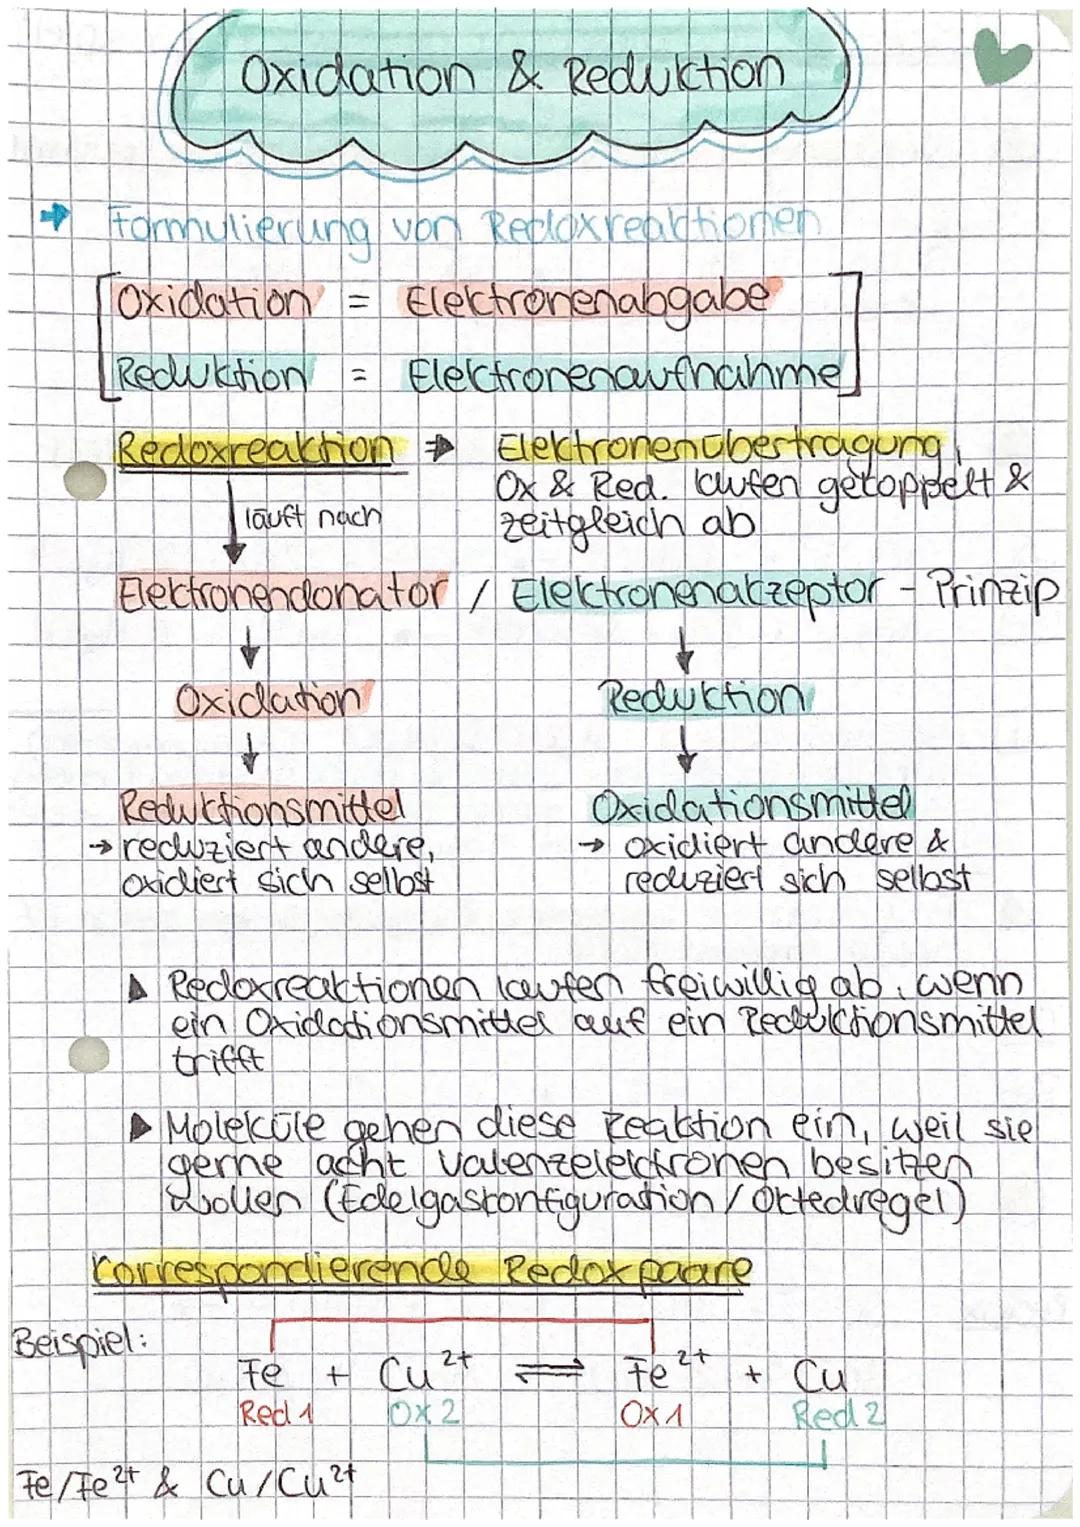 Oxidation & Reduktion
Formulierung von Redoxreaktionen
Oxidation = Elektronenabgabe
Reduktion = Elektronenaufnahme
Redoxreaktion → Elektronenübertragung,
Ox & Red. laufen gekoppelt &
zeitgleich ab
läuft nach
Elektronendonator / Elektronenakzeptor - Prinzip
↓ ↓
Oxidation Reduktion
↓ ↓
Reduktionsmittel Oxidationsmittel
→ reduziert andere, → oxidiert andere &
oxidiert sich selbst reduziert sich selbst
▲ Redoxreaktionen laufen freiwillig ab, wenn
ein Oxidationsmittel auf ein Reduktionsmittel
trifft
▶ Moleküle gehen diese Reaktion ein, weil sie
gerne acht Valenzelektronen besitzen
wollen (Edelgaskonfiguration / Oktedregel)
korrespondierende Redoxpaare
Beispiel:
Fe + Cu²⁺ ⇌ Fe²⁺ + Cu
Red 1 Ox 2 Ox 1 Red 2
Fe/Fe²⁺ & Cu/Cu²⁺